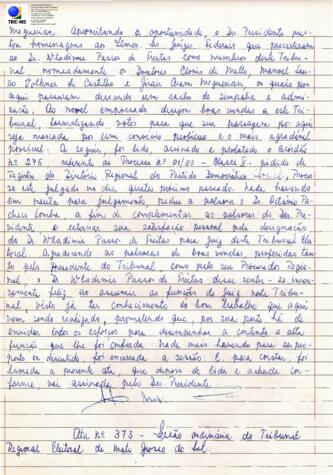 TRE-MS
Megueriam. Aproveitando a oportunidade, o Sr. Presidente pres-
tou homenagens aos Ilmos. Srs. Juízes Federais que precederam
ao Dr. Wladimir Passos de Freitas como membros deste Tribu-
nal nomeadamente os Doutores Clovis de Mello, Manoel Lau-
ro Volkmer de Castilho e Jirair Aram Megueriam, os quais por
aqui passaram deixando um rastro de simpatia e admi-
ração. Ao novel empossado dirigiu boas vindas a este Tri-
bunal, formalizando votos para que sua passagem por aqui
seja marcada por um convívio profícuo e o mais agradável
possível. A seguir, foi lido, assinado e prolatado o acórdão
Nº 275 referente ao Processo nº 01/83 - Classe X - pedido de
Registro do Diretório Regional do Partido Democrático Social, Proces-
so este, julgado no dia quatro próximo passado. Nada havendo
em pauta para julgamento, pediu a palavra o Dr.
Lomba, a fim de complementar as palavras do Sr. Presi-
dente e externar sua satisfação pessoal pela designação
do Dr. Wladimir Passos de Freitas para Juiz deste Tribunal Elei-
toral. Agradecendo as palavras de boas vindas, proferidas tan-
to pelo Presidente do Tribunal, como pelo seu Procurador Regio-
nal, o Dr. Wladimir Passos de Freitas disse sentir-se imen-
samente feliz ao assumir as funções de Juiz neste Tribu-
nal visto já ter conhecimento do bom trabalho que aqui
vem sendo realizado, prometendo que, por sua parte há de
envidar todos os esforços para desempenhar a contento a alta
função que lhe foi confiada. Nada mais havendo para ser pro-
posto ou discutido foi encerrada a sessão. E, para constar, foi
lavrada a presente ata, que depois de lida e achada con-
forme, vai assinada pelo Sr. Presidente.
Ata nº 373 - Sessão ordinária do Tribunal
Regional Eleitoral de Mato Grosso do Sul.